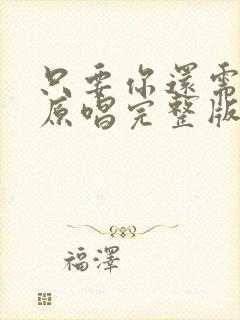 只要你還需
原唱完整版
福澤